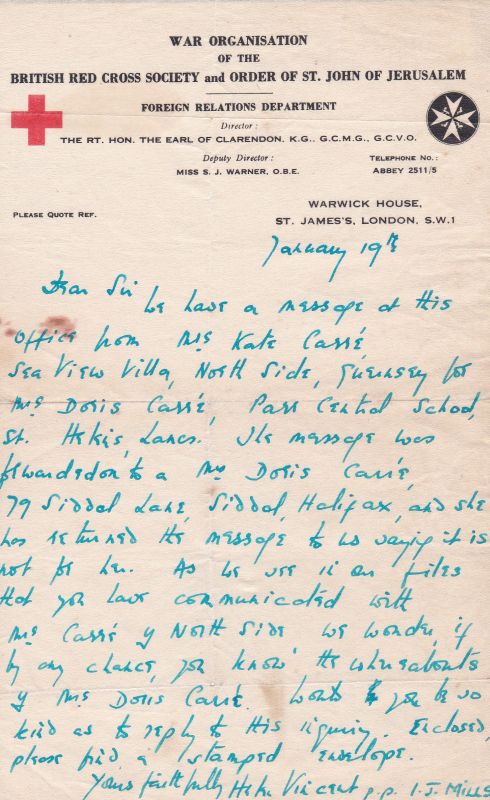 WAR ORGANISATION
OF THE
BRITISH RED CROSS SOCIETY and ORDER OF ST. JOHN OF JERUSALEM
FOREIGN RELATIONS DEPARTMENT
Director :
THE RT. HON. THE EARL OF CLARENDON. K.G., G.C.M.G., G.C.V.O.
Deputy Director :
MISS S. J. WARNER, O.B.E.
TELEPHONE NO. :
ABBEY 2511/5
PLEASE QUOTE REF.
WARWICK HOUSE,
ST. JAMES'S, LONDON, S.W.1
January 19th
Dear Sir
We have a message at this
office from Mrs Kate Carré
Sea View Villa, North Side, Guernsey for
Mrs Doris Carré, Parr Central School,
St. Helens, Lancs. The message was
forwarded on to a Mrs Doris Carré,
79 Siddal Lane, Siddal, Halifax, and she
has returned the message to us saying it is
not for her. As we see in our files
that you have communicated with
Mrs Carré of North Side we wonder if
by any chance, you know the whereabouts
of Mrs Doris Carré. Would you be so
kind as to reply to this inquiry. Enclosed,
please find a stamped envelope.
Yours faithfully Helen Vincent p.p. I. J. Mills